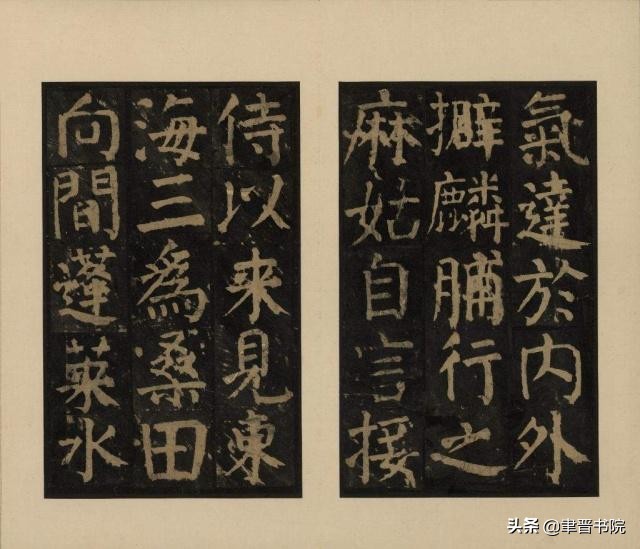 氣達於内外
擗麟脯行之
麻姑自言接
侍以来見東
海三為桑田
向間蓬萊水
头条 @聿晋书院